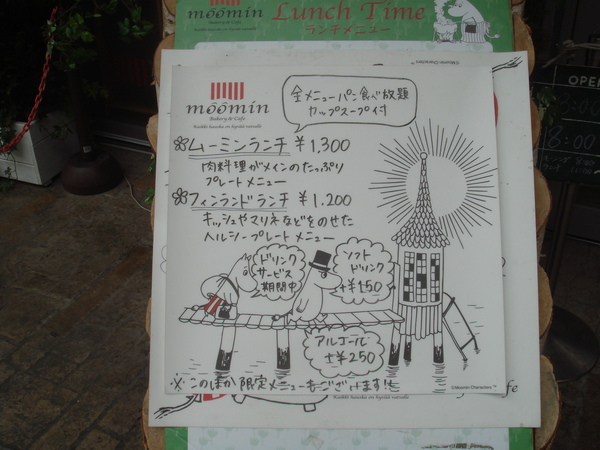 mōōmin
Bakery & Cafe
Lunch Time
ランチメニュー
©Moomin Characters™
mōōmin
Bakery & Cafe
Kaikki hauska on hyvää vatsalle
全メニューパン食べ放題
カップスープ付
ムーミンランチ ¥1,300
肉料理がメインのたっぷり
プレートメニュー
フィンランドランチ ¥1.200
キッシュやマリネなどをのせた
ヘルシープレートメニュー
ドリンク
サービス
期間中
ソフト
ドリンク
+¥150
アルコール
+¥250
※このほか限定メニューもございます!!
©Moomin Characters™
OPEN